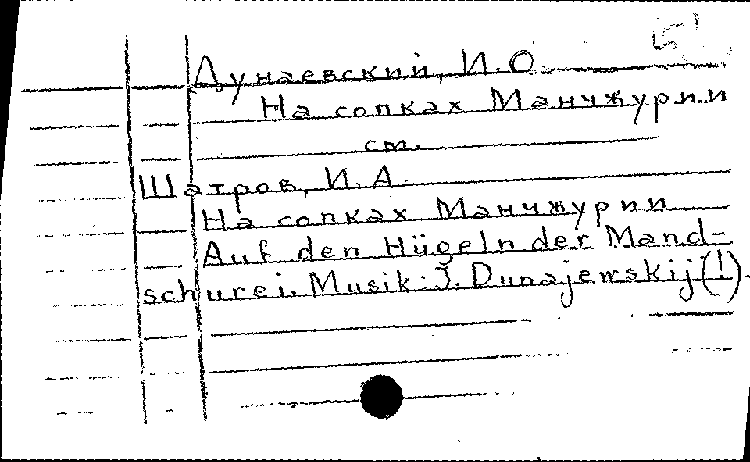 Дунаевский, И.О.
На сопках Манчжурии
см.
Шатров, И.А.
На сопках Манчжурии
Auf den Hügeln der Mand-
schurei. Musik: J. Dunajewskij(!)